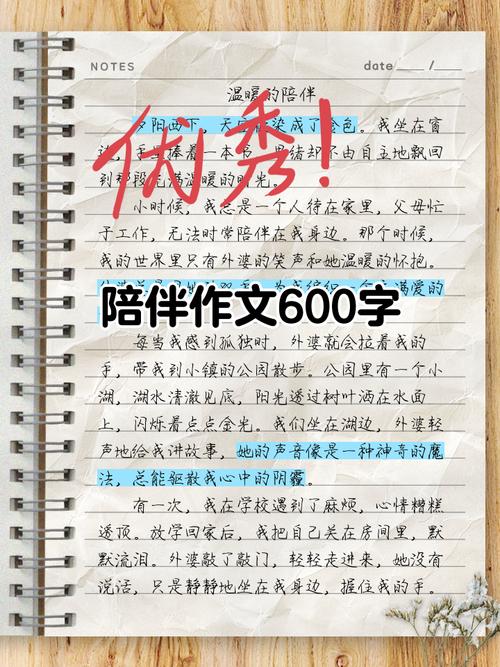 NOTES
date / 
温暖的陪伴
夕阳西下，天空被染成了金色。我坐在窗
边，手里捧着一本书，思绪却不由自主地飘回
到那段充满温暖的时光。
优秀！
小时候，我总是一个人待在家里，父母忙
于工作，无法时常陪伴在我身边。那个时候，
我的世界里只有外婆的笑声和她温暖的怀抱。
满爱的
陪伴作文600字
每当我感到孤独时，外婆就会拉着我的
手，带我到小镇的公园散步。公园里有一个小
湖，湖水清澈见底，阳光透过树叶洒在水面
上，闪烁着点点金光。我们坐在湖边，外婆轻
声地给我讲故事，她的声音像是一种神奇的魔
法，总能驱散我心中的阴霾。
有一次，我在学校遇到了麻烦，心情糟糕
透顶。放学回家后，我把自己关在房间里，默
默流泪。外婆敲了敲门，轻轻走进来，她没有
说话，只是静静地坐在我身边，握住我的手。